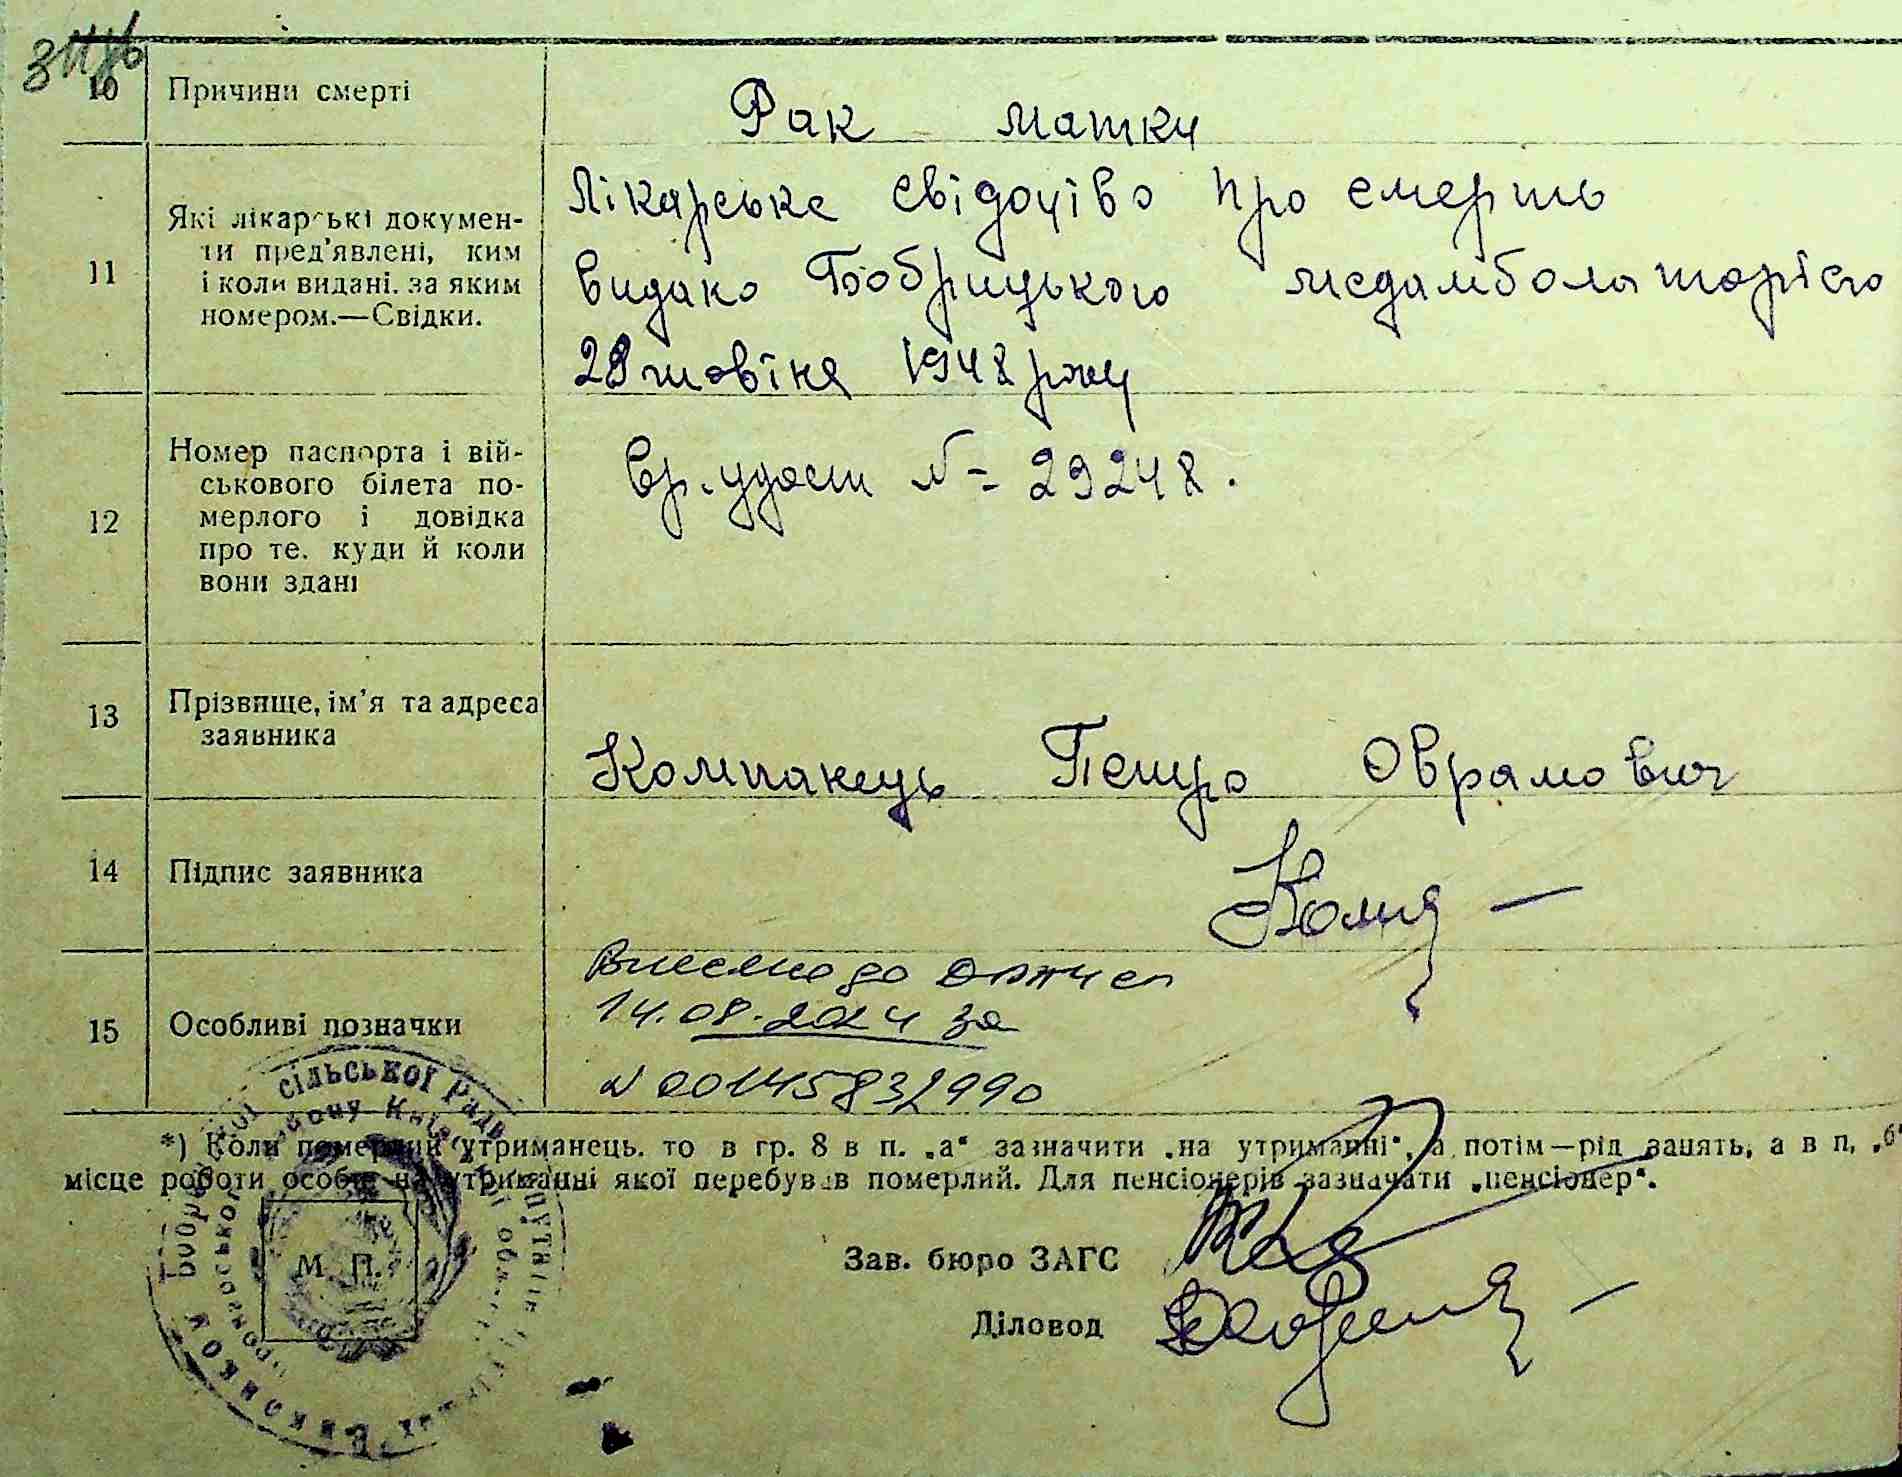 10 Причини смерті
Рак матки
11 Які лікарські докумен-
ти пред'явлені, ким
і коли видані, за яким
номером.—Свідки.
Лікарське свідоцтво про смерть
видано Бобрицького медамболаторією
28 жовтня 1948 року
12 Номер паспорта і вій-
ськового білета по-
мерлого і довідка
про те. куди й коли
вони здані
Вр. удост № 29248.
13 Прізвище, ім'я та адреса
заявника
Компанець Петро Оврамович
14 Підпис заявника
15 Особливі позначки
Внесено до
14.08.2024 за
№ 00145832990
*) Коли померлий утриманець. то в гр. 8 в п. „а“ зазначити „на утриманні“, а потім—рід занять, а в п. „б“
місце роботи особи на утриманні якої перебував померлий. Для пенсіонерів зазначати „пенсіонер“.
М. П.
Зав. бюро ЗАГС
Діловод
сільської Ради
Виконком